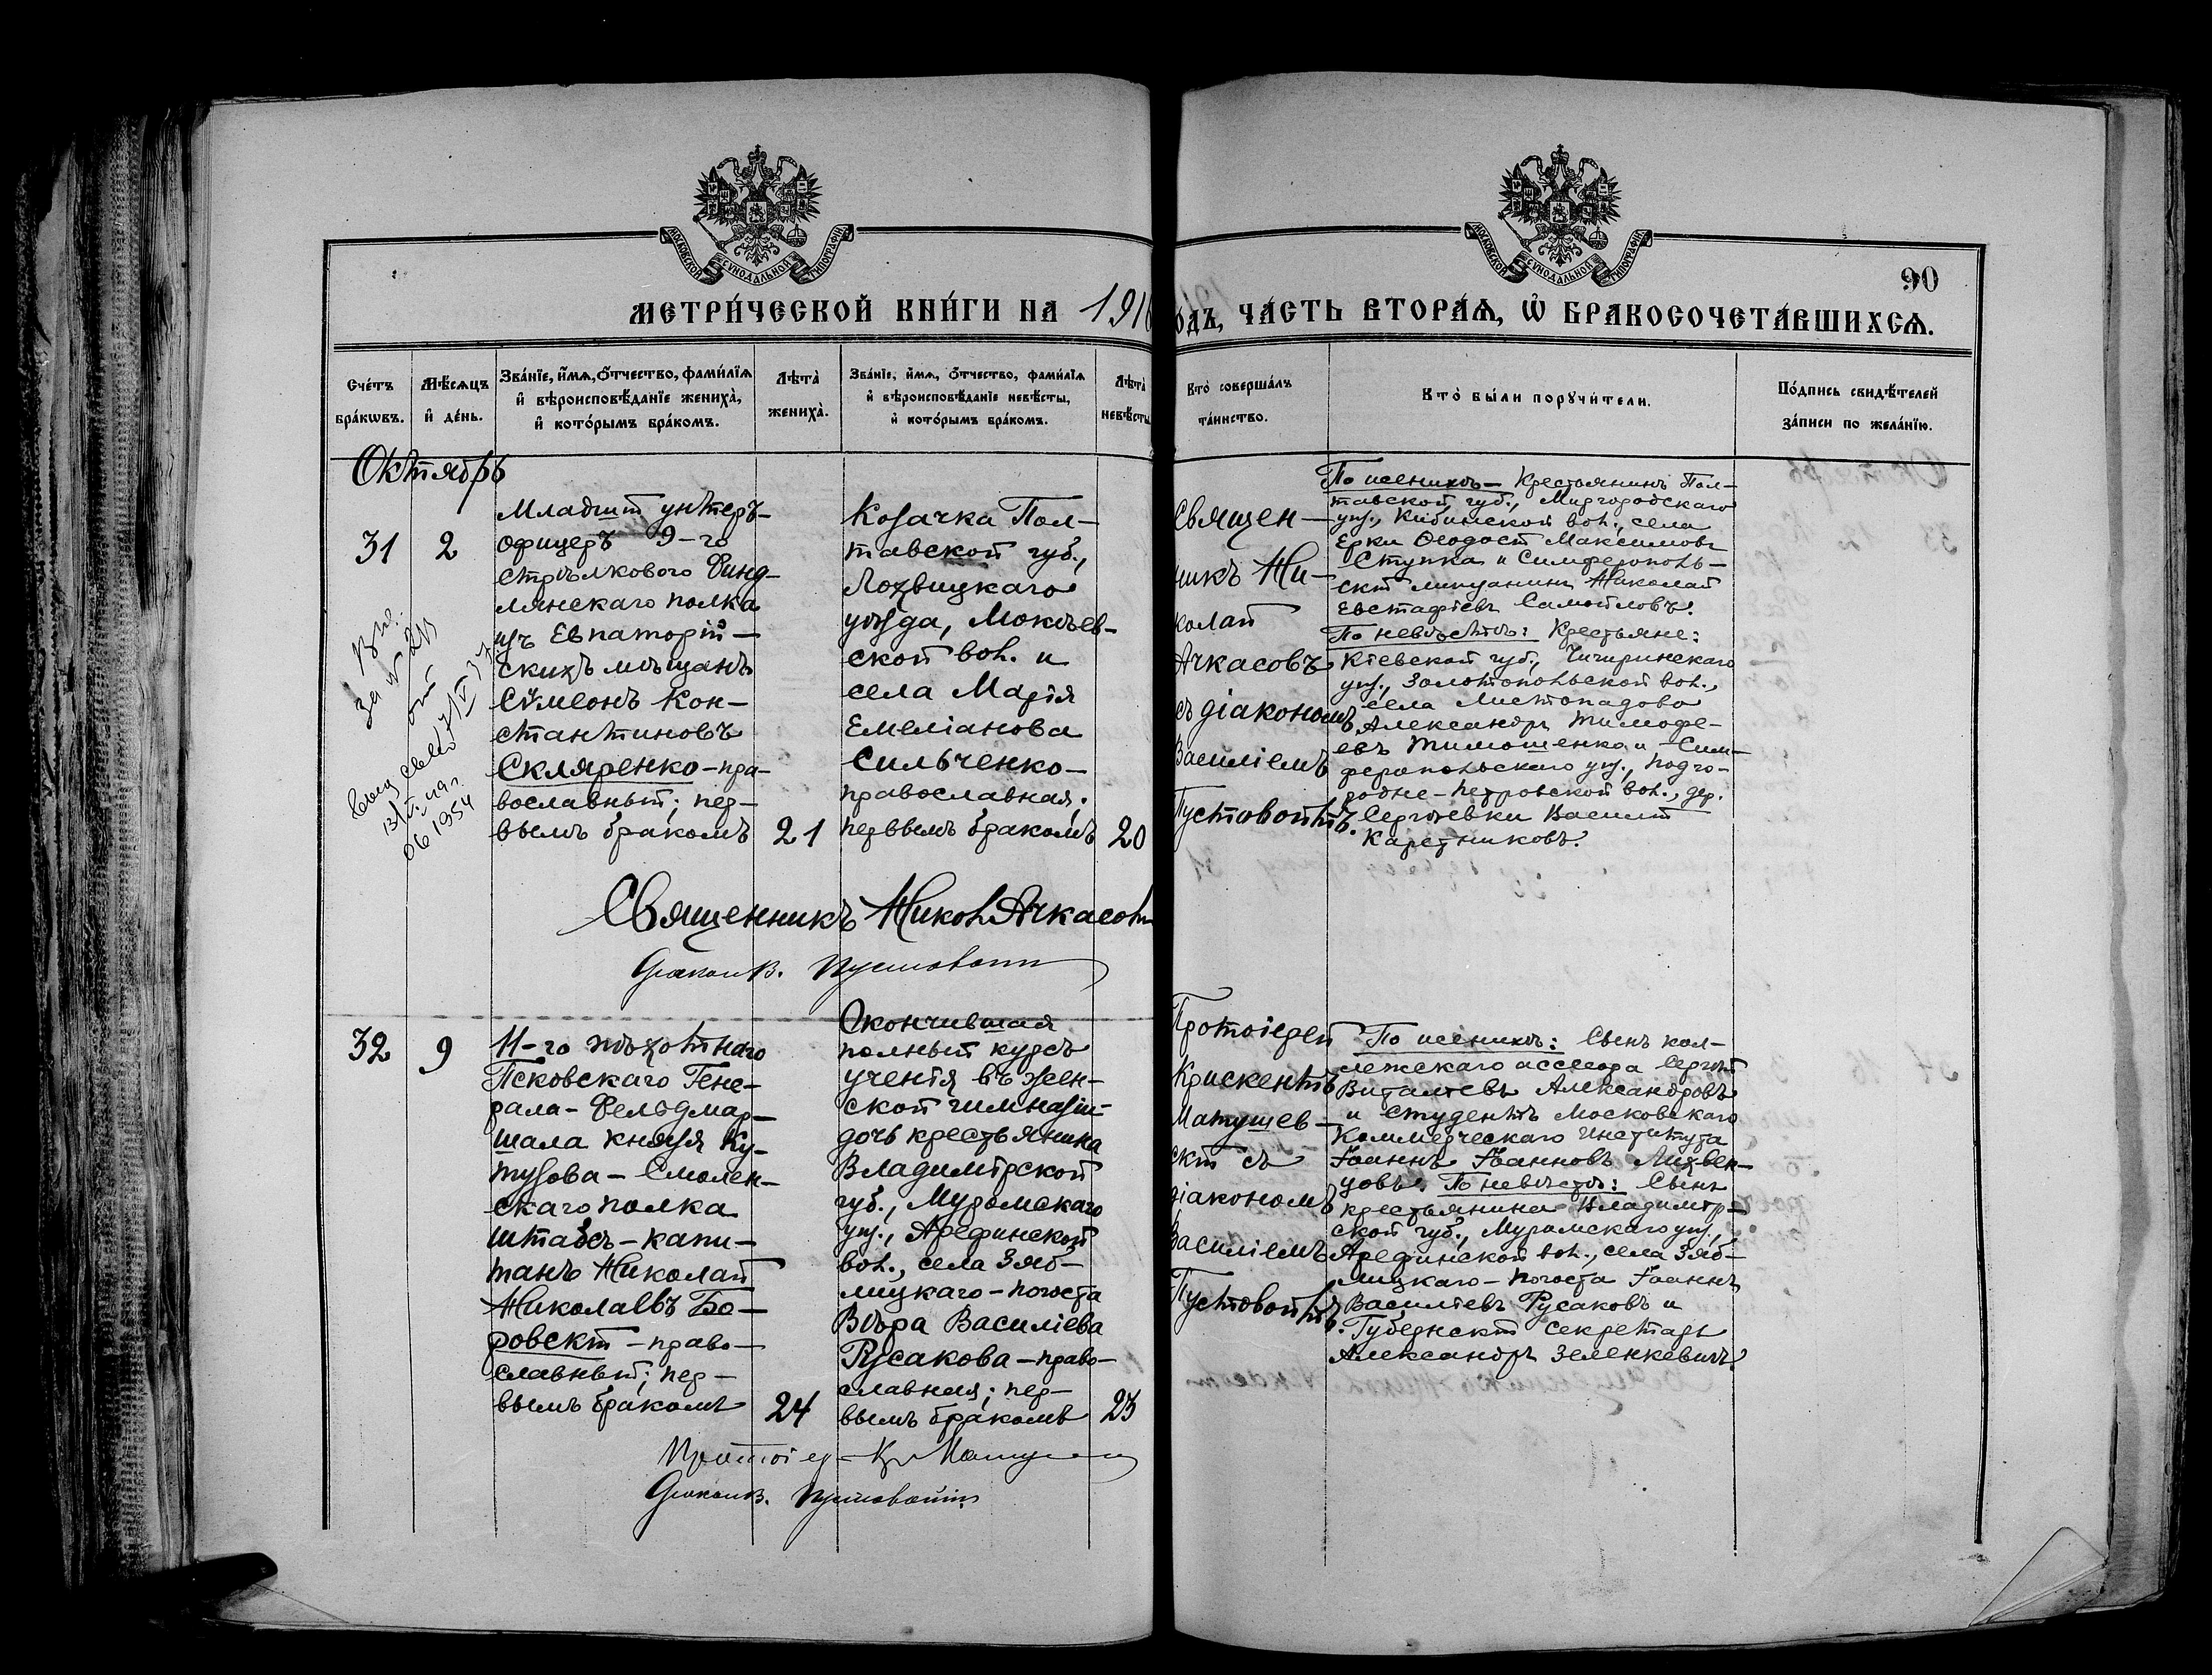 МОСКОВСКОЙ СѴНОДАЛЬНОЙ ТИПОГРАФІИ
МОСКОВСКОЙ СѴНОДАЛЬНОЙ ТИПОГРАФІИ
90
МЕТРИ́ЧЕСКОЙ КНИ́ГИ НА 191
ОДЪ, ЧА́СТЬ ВТОРА́Ѧ, Ѡ҆ БРАКОСОЧЕТА́ВШИХСѦ.
Сче́тъ
бра́кѡвъ.
Мѣ́сѧцъ
и҆ де́нь.
Зва́нїе, и҆́мѧ, ѻ҆́тчество, фами́лїѧ
и҆ вѣроисповѣ́данїе жениха̀,
и҆ кото́рымъ бра́комъ.
Лѣ́та̀
жениха̀.
Зва́нїе, и҆́мѧ, ѻ҆́тчество, фами́лїѧ
и҆ вѣроисповѣ́данїе невѣ́сты,
и҆ кото́рымъ бра́комъ.
Лѣ́та̀
невѣ́сты
Кто̀ соверша́лъ
та́инство.
Кто̀ бы́ли порꙋчи́тели.
По́дпись свидѣ́телей
за́писи по жела́нїю.
Октябрь
31
2
Младшій унтеръ-
офицеръ 9-го
стрѣлкового Финд-
лянскаго полка
изъ Евпаторій-
скихъ мѣщанъ
Сѵмеонъ Кон-
стантиновъ
Скляренко - пра-
вославный; пер-
вымъ бракомъ
21
Козачка Пол-
тавской губ.,
Лохвицкаго
уѣзда, Мокѣев-
ской вол. и
села Марія
Емеліанова
Сильченко -
православная.
первымъ бракомъ
20
Священ-
никъ Ни-
колай
Ачкасовъ
съ діакономъ
Василіемъ
Пустовойтъ.
По женихѣ - Крестьянинъ Пол-
тавской губ., Миргородскаго
уѣз., Кибинской вол., села
Ерки Ѳеодосій Максимовъ
Ступка и Симферополь-
скій мѣщанинъ Николай
Евстафіевъ Самойловъ.
По невѣстѣ: Крестьяне:
Кіевской губ., Чигиринскаго
уѣз., Златопольской вол.,
села Листопадово
Александръ Тимофе-
евъ Тимошенко и Сим-
феропольскаго уѣз., Подго-
родне-Петровской вол., дер.
Сергѣевки Василій
Каретниковъ.
Священникъ Никол Ачкасовъ
Діаконъ В. Пустовойтъ
32
9
11-го пѣхотнаго
Псковскаго Гене-
рала-Фельдмар-
шала князя Ку-
тузова-Смолен-
скаго полка
штабсъ-капи-
танъ Николай
Николаевъ Бо-
ровскій - право-
славный; пер-
вымъ бракомъ
24
Окончившая
полный курсъ
ученія въ жен-
ской гимназіи
дочь крестьянина
Владимірской
губ., Муромскаго
уѣз., Арефинской
вол., села Зяб-
лицкаго-погоста
Вѣра Василіева
Русакова - право-
славная; пер-
вымъ бракомъ
23
Протоіерей
Крискентъ
Матушев-
скій съ
діакономъ
Василіемъ
Пустовойтъ.
По женихѣ: Сынъ кол-
лежскаго ассесора Сергѣй
Виталіевъ Александровъ
и студентъ Московскаго
Коммерческаго Института
Іоаннъ Іоанновъ Лихвен-
цовъ. По невѣстѣ: Сынъ
крестьянина Владимір-
ской губ., Муромскаго уѣз.,
Арефинской вол., села Зяб-
лицкаго-погоста Іоаннъ
Василіевъ Русаковъ и
Губернскій секретарь
Александръ Зеленкевичъ.
Діаконъ В. Пустовойтъ